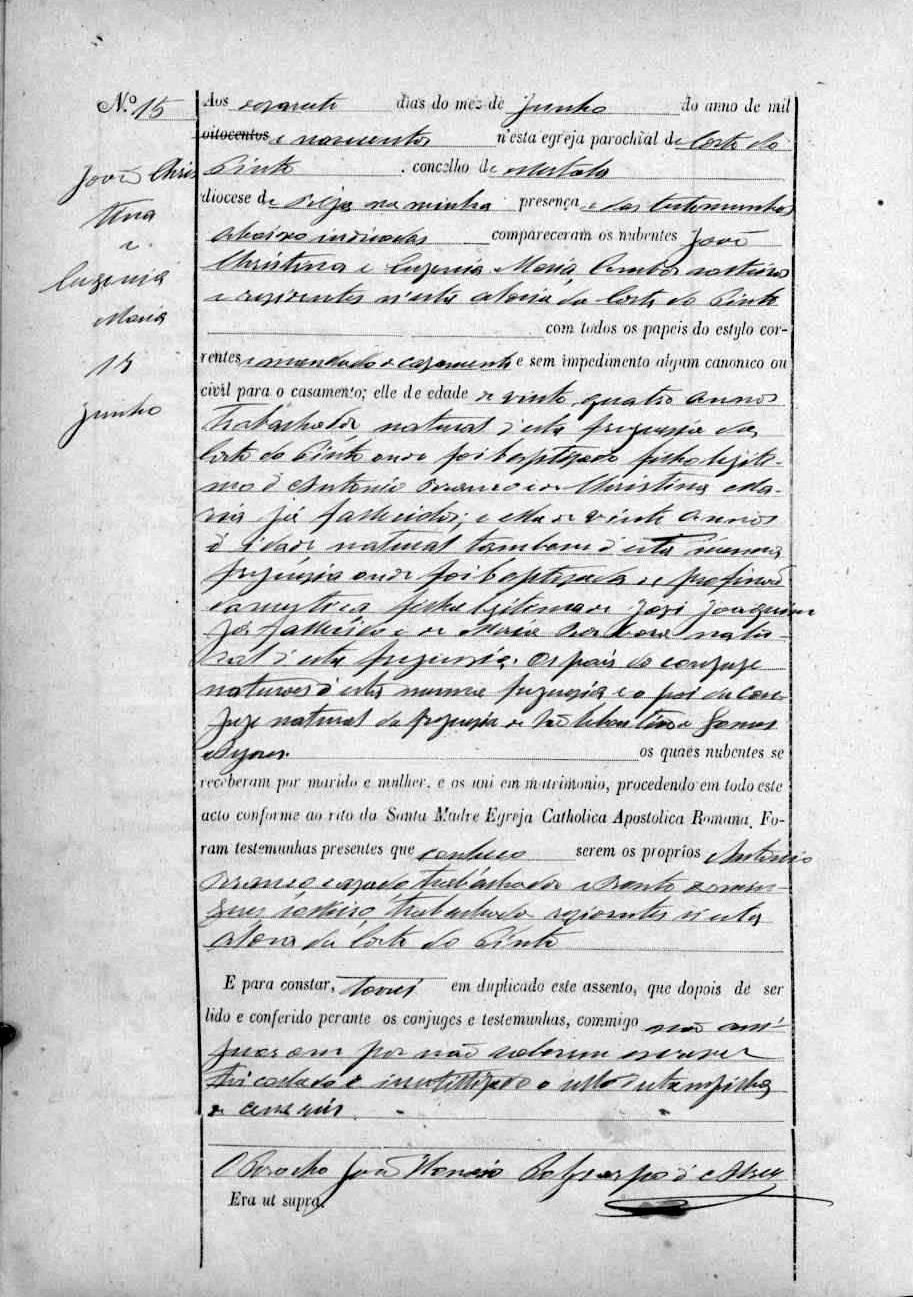 N.º 15
João Chris
tina
e
Eugenia
Maria
junho
Aos dias do mez de Junho do anno de mil
oitocentos e novecentos n'esta egreja parochial de Corte do
Pinto concelho de Mertola
diocese de Beja na minha presença e das testemunhas
abaixo indicadas compareceram os nubentes João
Christina e Eugenia Maria ambos solteiros
e residentes n'esta aldeia da Corte do Pinto
com todos os papeis do estylo cor-
rentes e mandado de casamento e sem impedimento algum canonico ou
civil para o casamento; elle de edade de vinte quatro annos
trabalhador natural d'esta freguesia da
Corte do Pinto onde foi baptisado filho legiti-
mo d'Antonio e de Christina Ma-
ria já fallecidos; e ella de vinte annos
d'idade natural tambem d'esta mesma
freguesia onde foi baptisada de profissão
domestica filha legitima de José Joaquim
já fallecido e de Maria natu-
ral d'esta freguesia. Os pais do conjuge
naturaes d'esta mesma freguesia e o pai da con
juge natural da freguesia de São Sebastião de Gomes
Ayres. os quaes nubentes se
receberam por marido e mulher, e os uni em matrimonio, procedendo em todo este
acto conforme ao rito da Santa Madre Egreja Catholica Apostolica Romana. Fo-
ram testemunhas presentes que conheço serem os proprios Antonio
casado trabalhador e Bento Domin-
gues solteiro, trabalhador residentes n'esta
aldeia da Corte do Pinto
E para constar, lavrei em duplicado este assento, que depois de ser
lido e conferido perante os conjuges e testemunhas, commigo não assi-
gnaram por não saberem escrever
collado e inutilisado o sello d'estampilha
O Parocho João d'Abreu
Era ut supra.